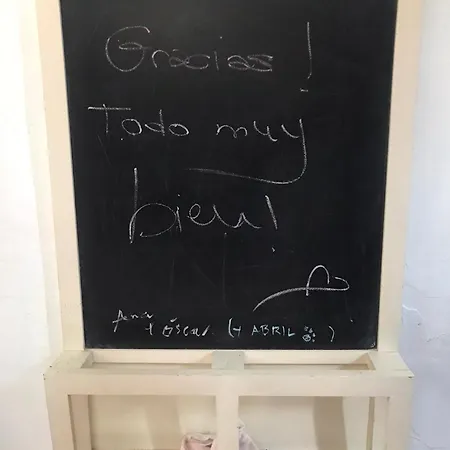 Gracias!
Todo muy
bien!
+ Óscar (+ ABRIL )